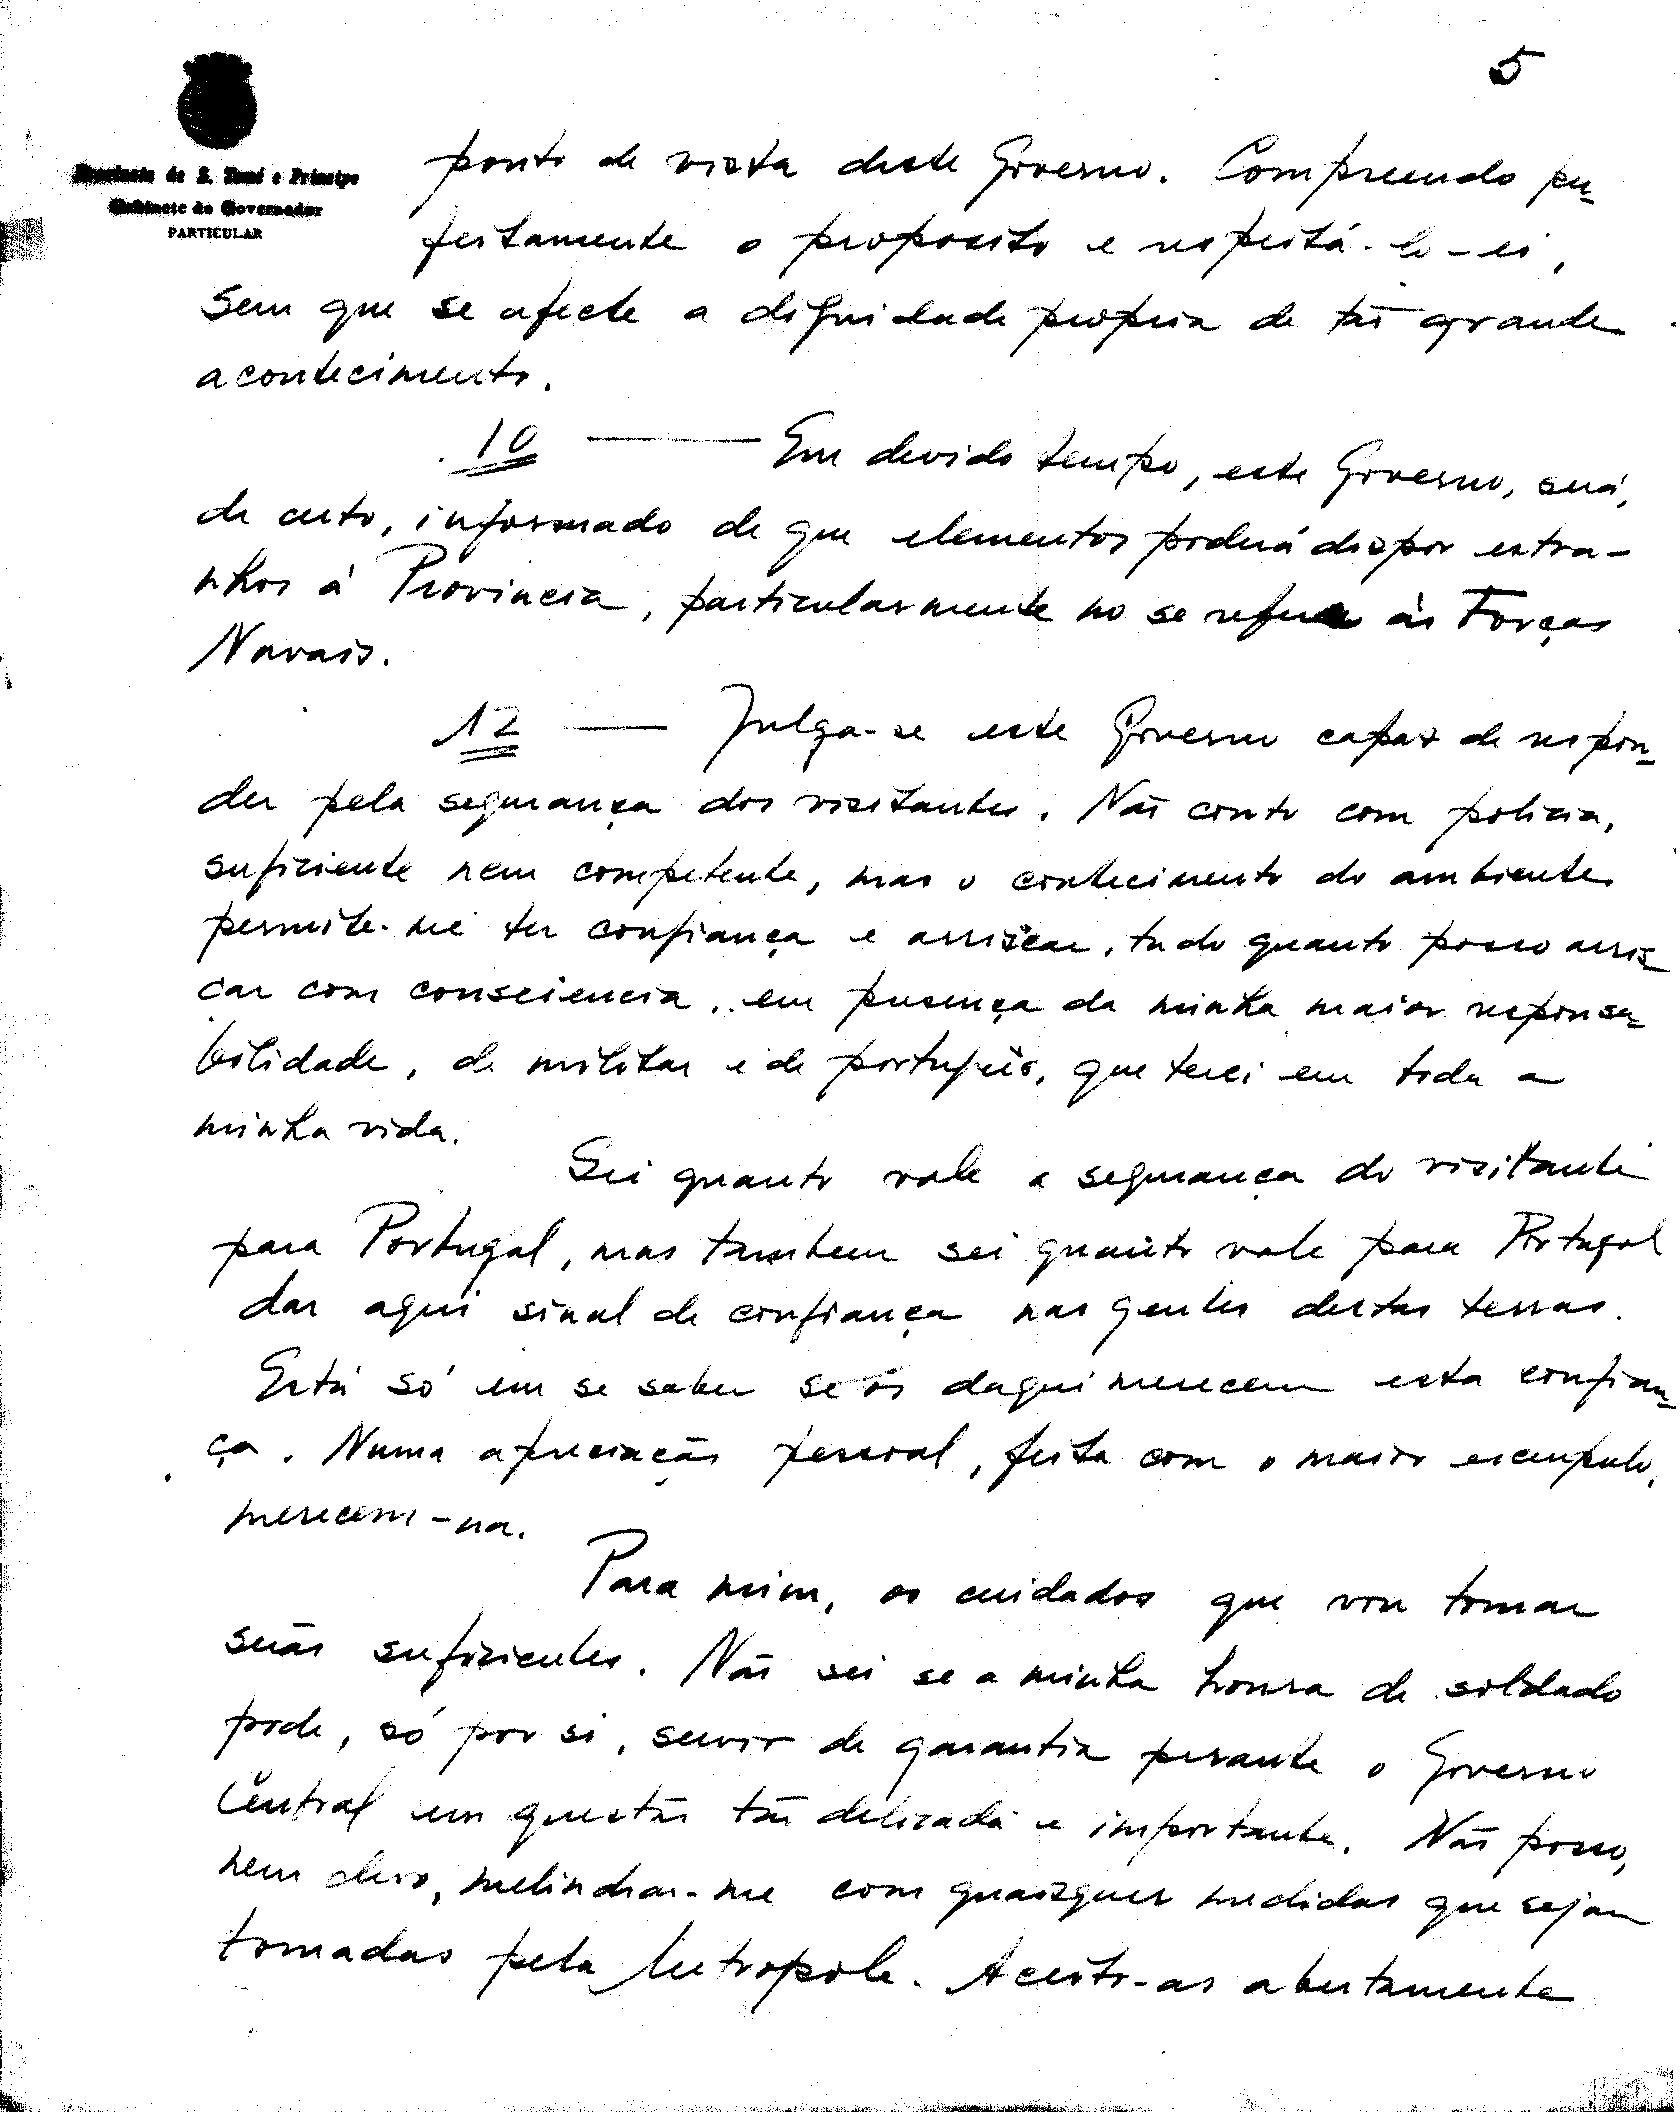 5
Provincia de S. Tomé e Principe
Gabinete do Governador
PARTICULAR
ponto de vista deste Governo. Compreendo per-
feitamente o proposito e respeitá-lo-ei,
sem que se afecte a dignidade propria de tão grande
acontecimento.
10 — Em devido tempo, este Governo, será,
de certo, informado de que elementos poderá dispor estra-
nhos á Provincia, particularmente no se refere ás Forças
Navais.
12 — Julga-se este Governo capaz de respon-
der pela segurança dos visitantes. Não conto com policia,
suficiente nem competente, mas o conhecimento do ambiente
permite-me ter confiança e arriscar, tudo quanto posso arris-
car com consciencia, em presença da minha maior responsa-
bilidade, de militar e de português, que terei em toda a
minha vida.
Sei quanto vale a segurança do visitante
para Portugal, mas tambem sei quanto vale para Portugal
dar aqui sinal de confiança nas gentes destas terras.
Está só em se saber se os daqui merecem esta confian-
ça. Numa apreciação pessoal, feita com o maior escrupulo,
merecem-na.
Para mim, os cuidados que vou tomar
serão suficientes. Não sei se a minha honra de soldado
pode, só por si, servir de garantia perante o Governo
Central em questão tão delicada e importante. Não posso,
nem devo, melindrar-me com quaisquer medidas que sejam
tomadas pela Metropole. Aceito-as abertamente